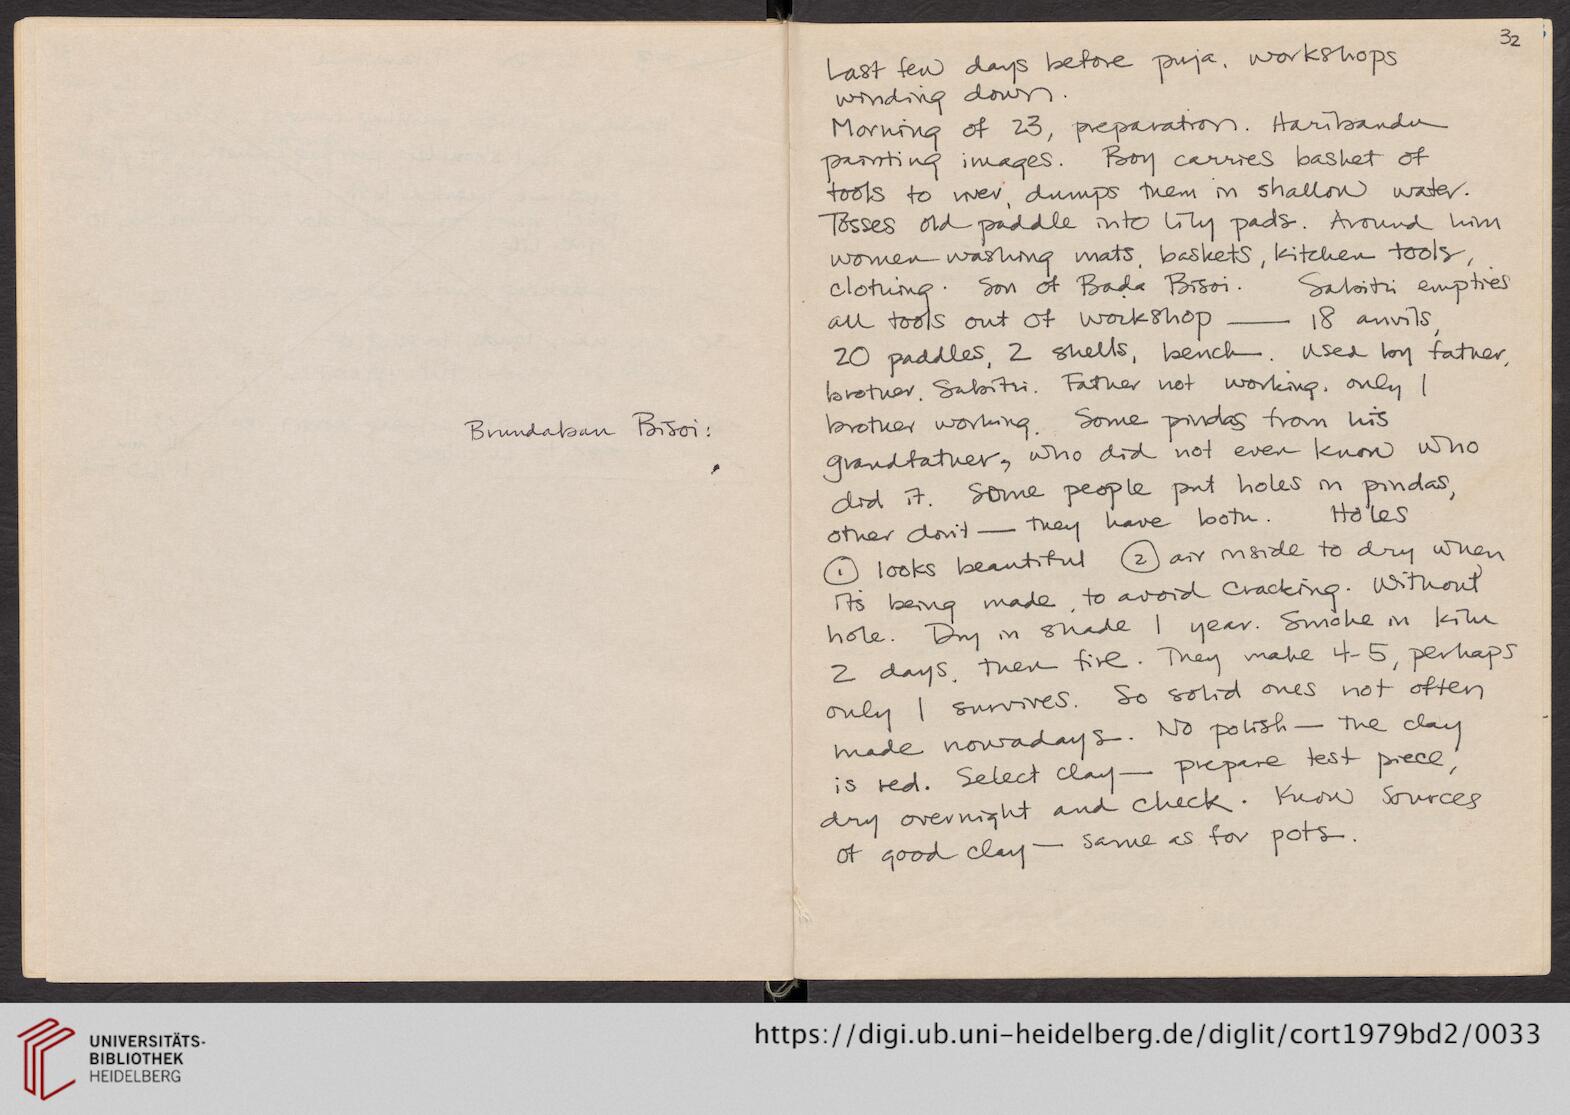 Brundaban Bisoi:
32
Last few days before puja, workshops
winding down.
Morning of 23, preparation. Haribandu
painting images. Boy carries basket of
tools to river, dumps them in shallow water.
Tosses old paddle into lily pads. Around him
women washing mats, baskets, kitchen tools,
clothing. Son of Bada Bisoi. Sabitri empties
all tools out of workshop — 18 anvils,
20 paddles, 2 shells, bench. Used by father,
brother, Sabitri. Father not working, only 1
brother working. Some pindas from his
grandfather, who did not even know who
did it. Some people put holes in pindas,
other don't — they have both. Holes
① looks beautiful ② air inside to dry when
it's being made, to avoid cracking. Without
hole. Dry in shade 1 year. Smoke in kiln
2 days, then fire. They make 4-5, perhaps
only 1 survives. So solid ones not often
made nowadays. No polish — the clay
is red. Select clay — prepare test piece,
dry overnight and check. Know sources
of good clay — same as for pots.
UNIVERSITÄTS-
BIBLIOTHEK
HEIDELBERG
https://digi.ub.uni-heidelberg.de/diglit/cort1979bd2/0033